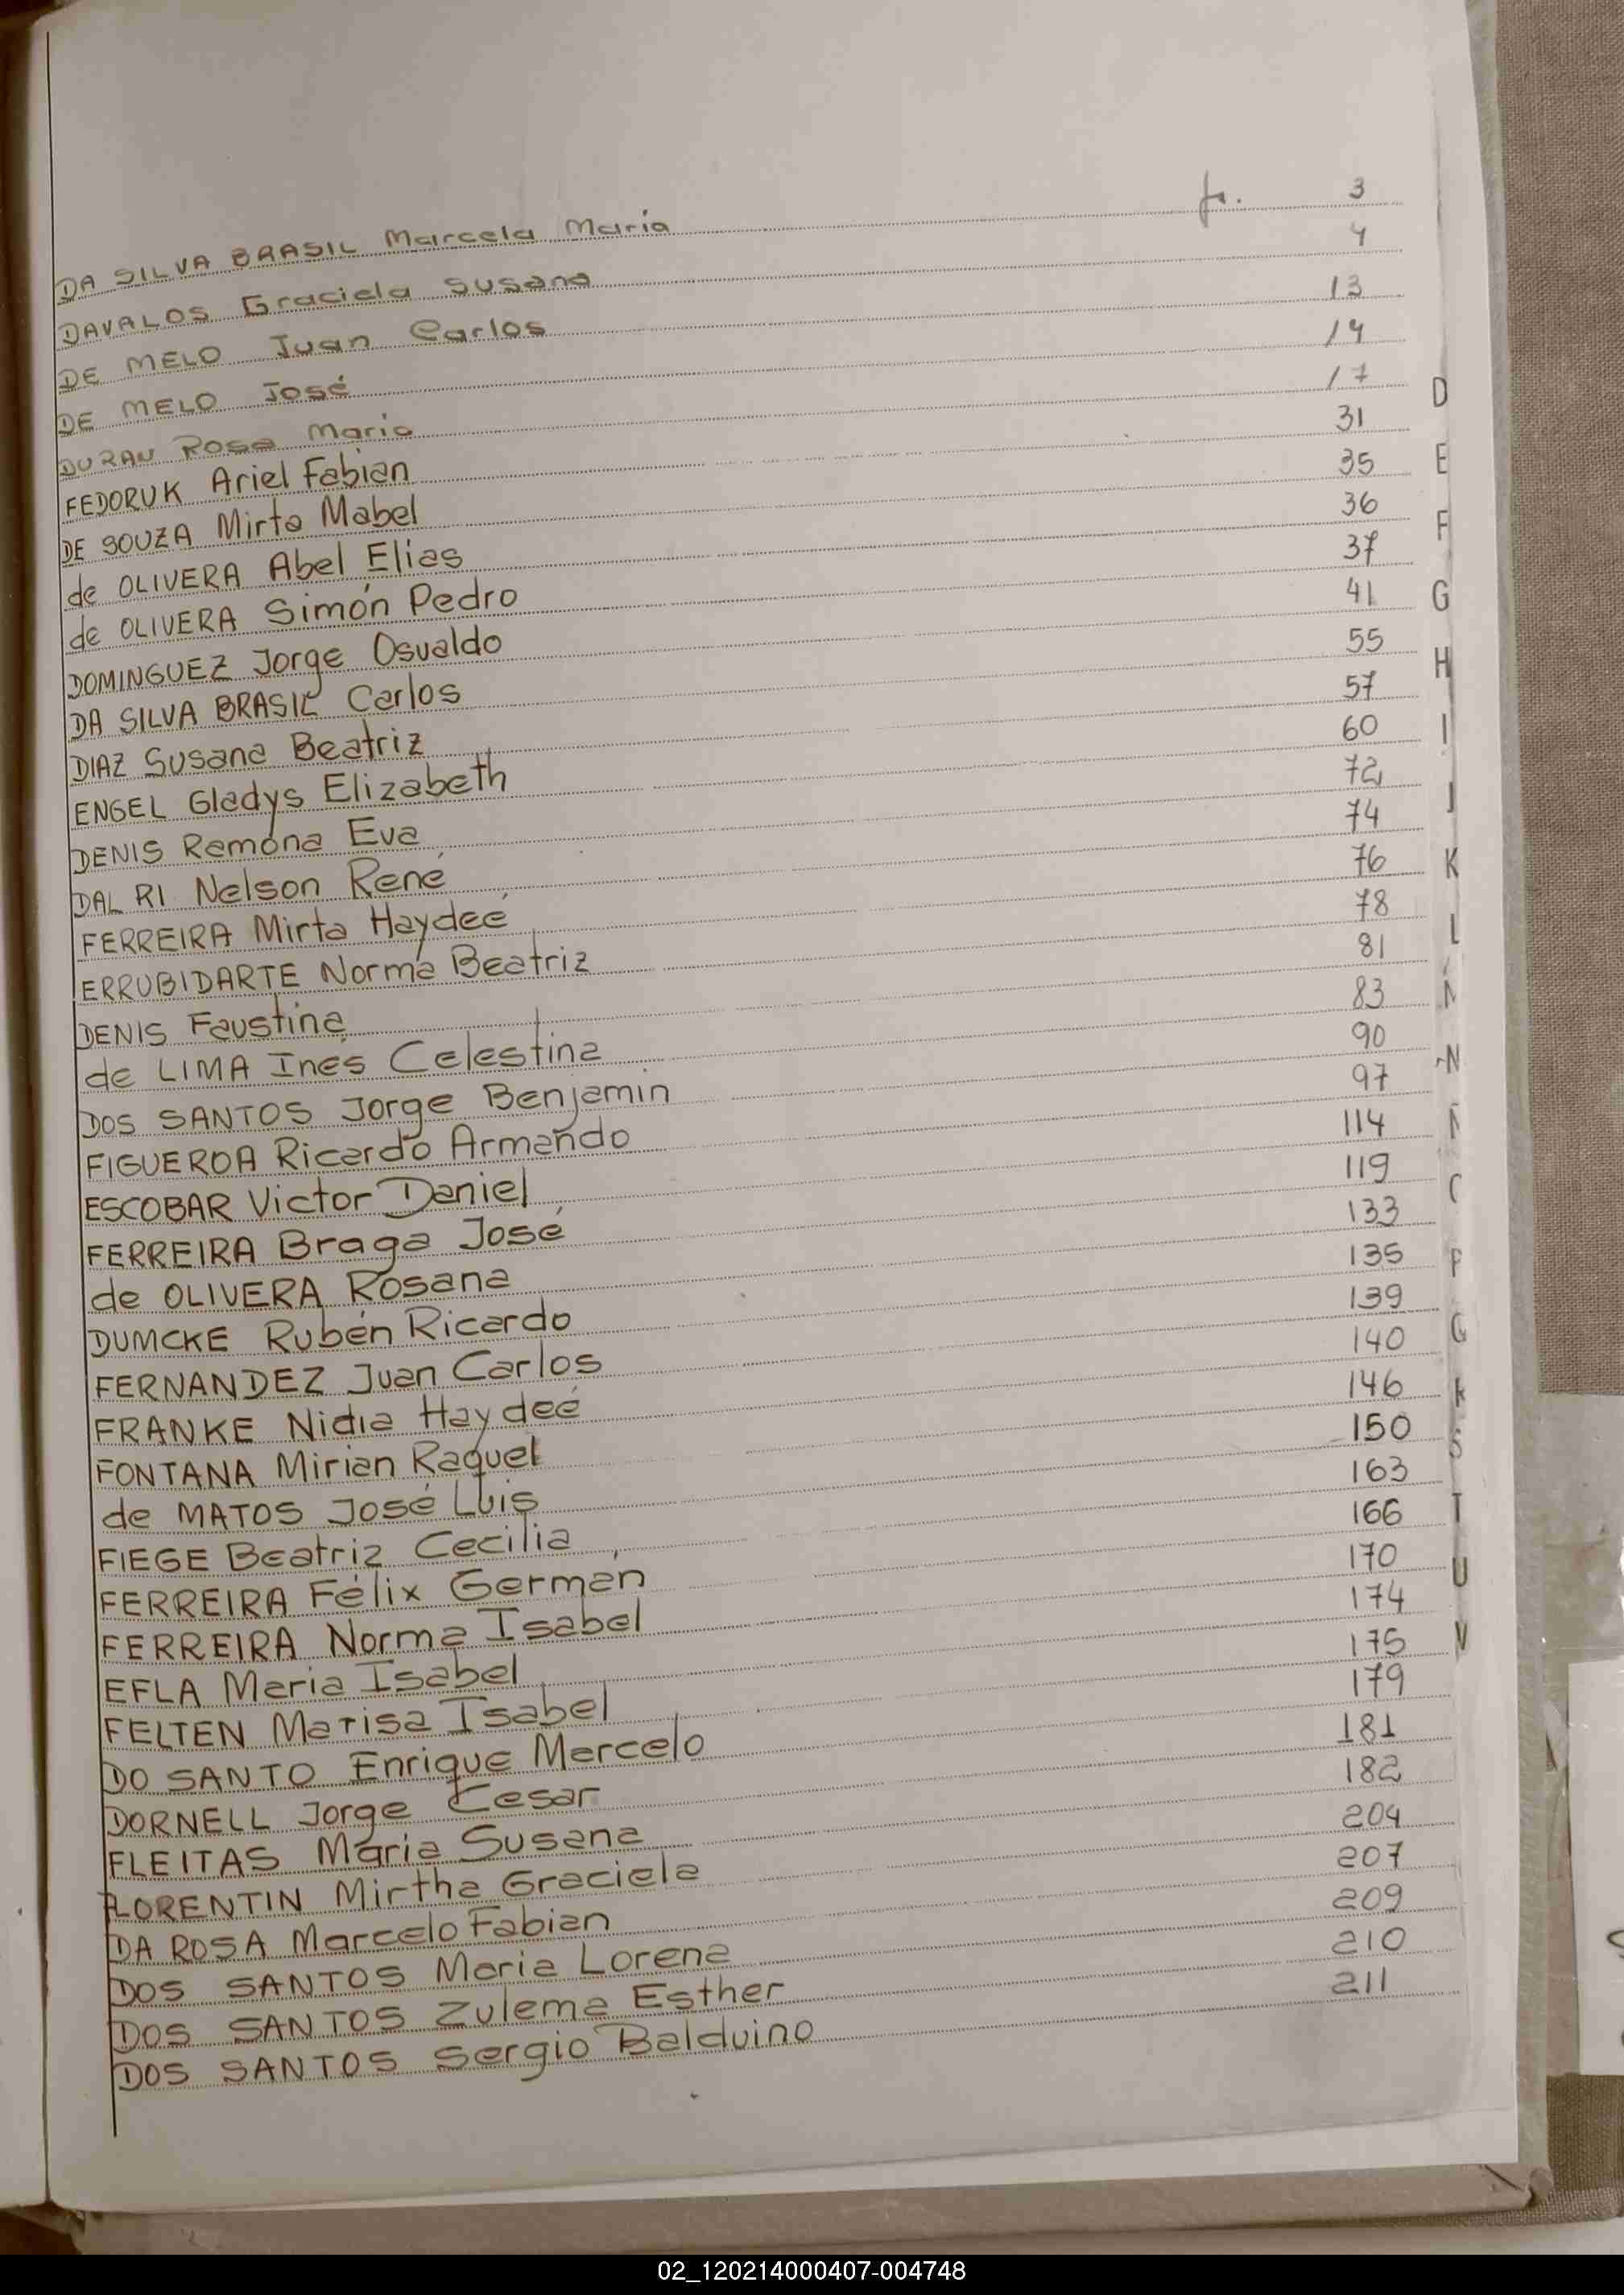 DA SILVA BRASIL Marcela Maria f. 3
DAVALOS Graciela Susana 4
DE MELO Juan Carlos 13
DE MELO José 14
DURAN Rosa Maria 17
FEDORUK Ariel Fabian 31
DE SOUZA Mirta Mabel 35
de OLIVERA Abel Elias 36
de OLIVERA Simón Pedro 37
DOMINGUEZ Jorge Osvaldo 41
DA SILVA BRASIL Carlos 55
DIAZ Susana Beatriz 57
ENGEL Gladys Elizabeth 60
DENIS Ramona Eva 72
DAL RI Nelson René 74
FERREIRA Mirta Haydeé 76
ERRUBIDARTE Norma Beatriz 78
DENIS Faustina 81
de LIMA Inés Celestina 83
DOS SANTOS Jorge Benjamin 90
FIGUEROA Ricardo Armando 97
ESCOBAR Victor Daniel 114
FERREIRA Braga José 119
de OLIVERA Rosana 133
DUMCKE Rubén Ricardo 135
FERNANDEZ Juan Carlos 139
FRANKE Nidia Haydeé 140
FONTANA Mirian Raquel 146
de MATOS José Luis 150
FIEGE Beatriz Cecilia 163
FERREIRA Félix Germán 166
FERREIRA Norma Isabel 170
EFLA Maria Isabel 174
FELTEN Marisa Isabel 175
DO SANTO Enrique Marcelo 179
DORNELL Jorge Cesar 181
FLEITAS Maria Susana 182
FLORENTIN Mirtha Graciela 204
DA ROSA Marcelo Fabian 207
DOS SANTOS Maria Lorena 209
DOS SANTOS Zulema Esther 210
DOS SANTOS Sergio Balduino 211
D
E
F
G
H
I
J
K
L
N
T
U
V
02_120214000407-004748